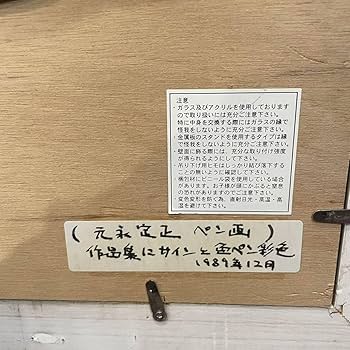 注意
・ガラス及びアクリルを使用しております
ので取り扱いには充分ご注意下さい。
特に中身を交換する際にはガラスの縁で
怪我をしないように充分ご注意下さい。
・金属板のスタンドを使用するタイプは縁
で怪我をしないように充分ご注意下さい。
・壁面に飾る際には、充分な取り付け強度
が得られるようにして下さい。
・吊り下げ用ヒモはしっかり結び落下する
ことの無いように確認して下さい。
・梱包材にビニール袋を使用している場合
があります。お子様が頭にかぶると窒息
の恐れがありますのでご注意下さい。
・変色変形を防ぐ為、直射日光・高温・高
湿を避けて下さい。
(元永定正 ペン画)
作品集にサインと色ペン彩色
1989年12月